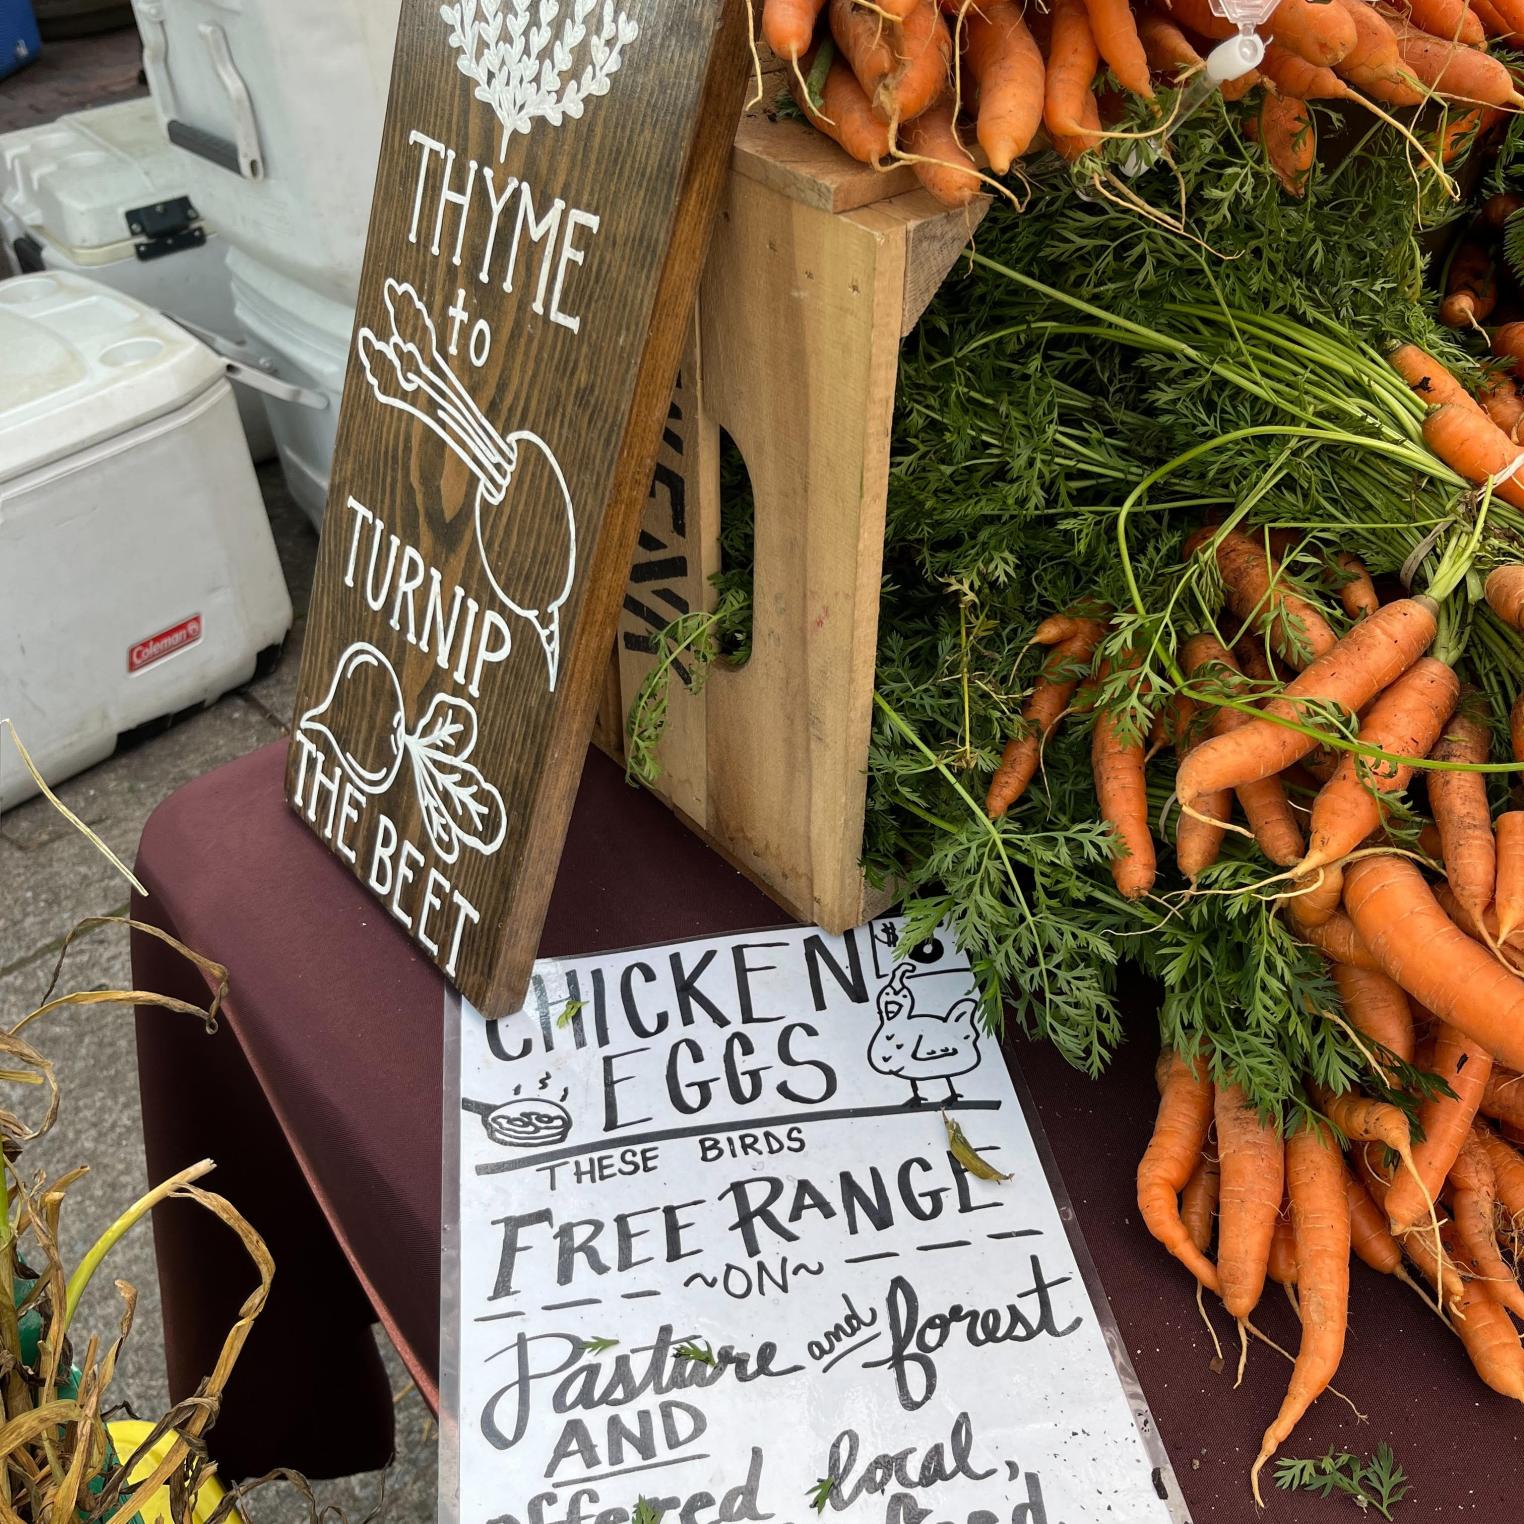 THYME
to
TURNIP
THE BEET
Coleman
CHICKEN
EGGS
THESE BIRDS
FREE RANGE
~ON~
Pasture and forest
AND
offered local,
feed